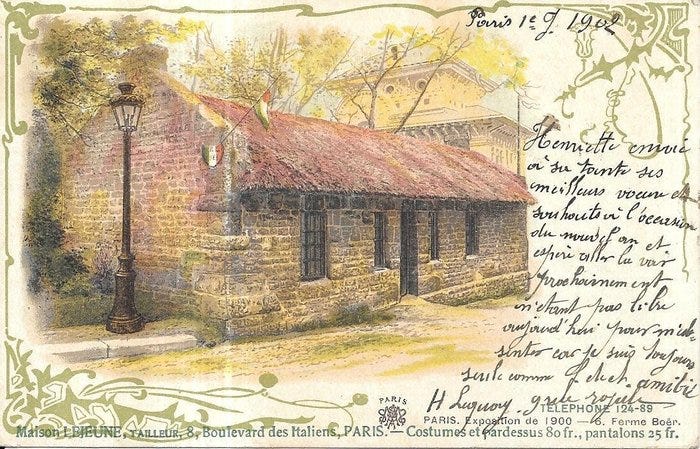 Paris 1e J. 1902
Henriette envoie
à sa tante ses
meilleurs voeux et
souhaits à l'occasion
du nouvel an et
espère aller la voir
prochainement
n'étant pas libre
aujourd'hui pour m'ab-
senter car je suis toujours
seule comme et amitié
H
TELEPHONE 124-89
PARIS
PARIS. Exposition de 1900 — 6. Ferme Boër.
Maison LEJEUNE, TAILLEUR, 8, Boulevard des Italiens, PARIS. — Costumes et pardessus 80 fr., pantalons 25 fr.